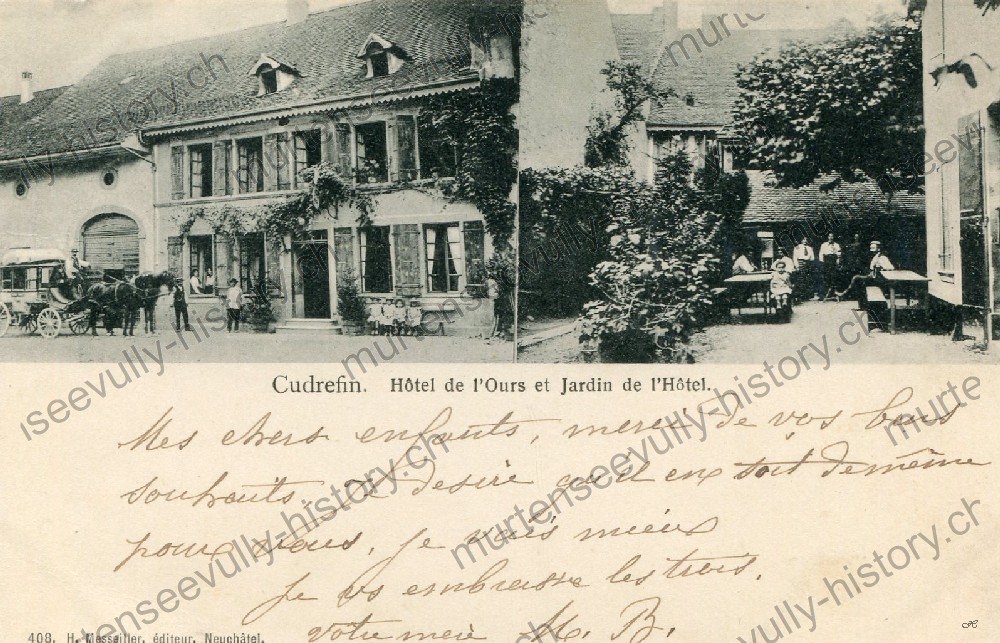 Cudrefin. Hôtel de l'Ours et Jardin de l'Hôtel.
Mes chers enfants, merci de vos bons
souhaits, je desire qu'il en soit de même
pour vous, je vais mieux
Je vs embrasse les trois.
Votre mère M. B.
408. H. Messeiller, éditeur, Neuchâtel.
murtenseevully-history.ch